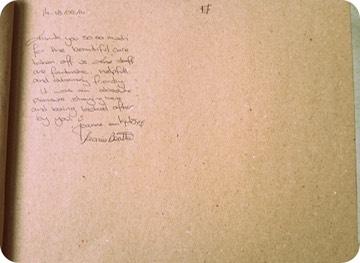 Thank you so so much
for the beautiful care
taken off us your staff
are fantastic, helpfull
and extremely friendly
it was an absolute
pleasure staying here
and being looked after
by you
Joanne